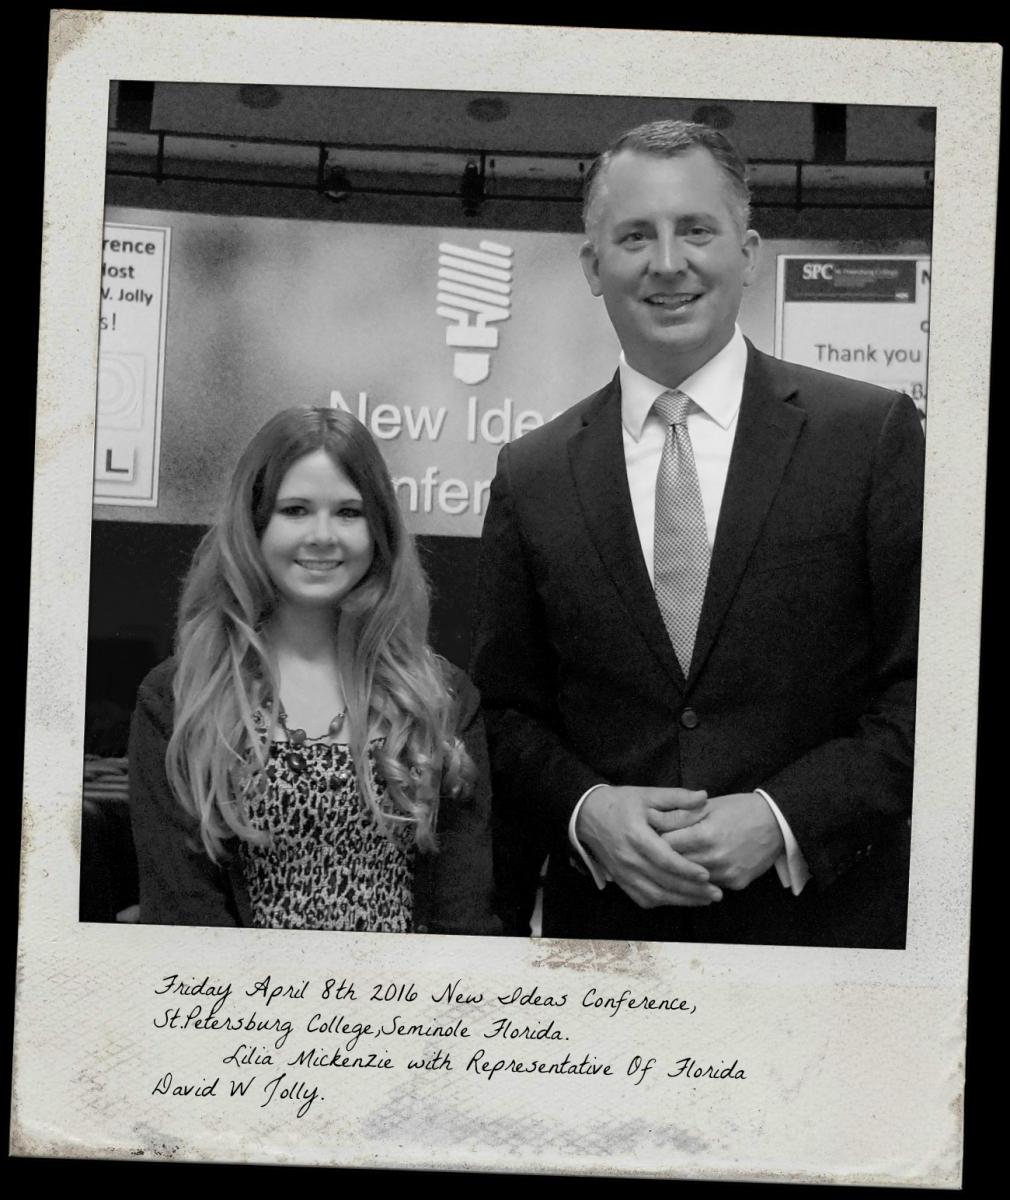 rence
lost
V. Jolly
s!
L
New Idea
nfer
SPC St. Petersburg College
N
Thank you
Friday April 8th 2016 New Ideas Conference,
St.Petersburg College,Seminole Florida.
Lilia Mickenzie with Representative Of Florida
David W Jolly.